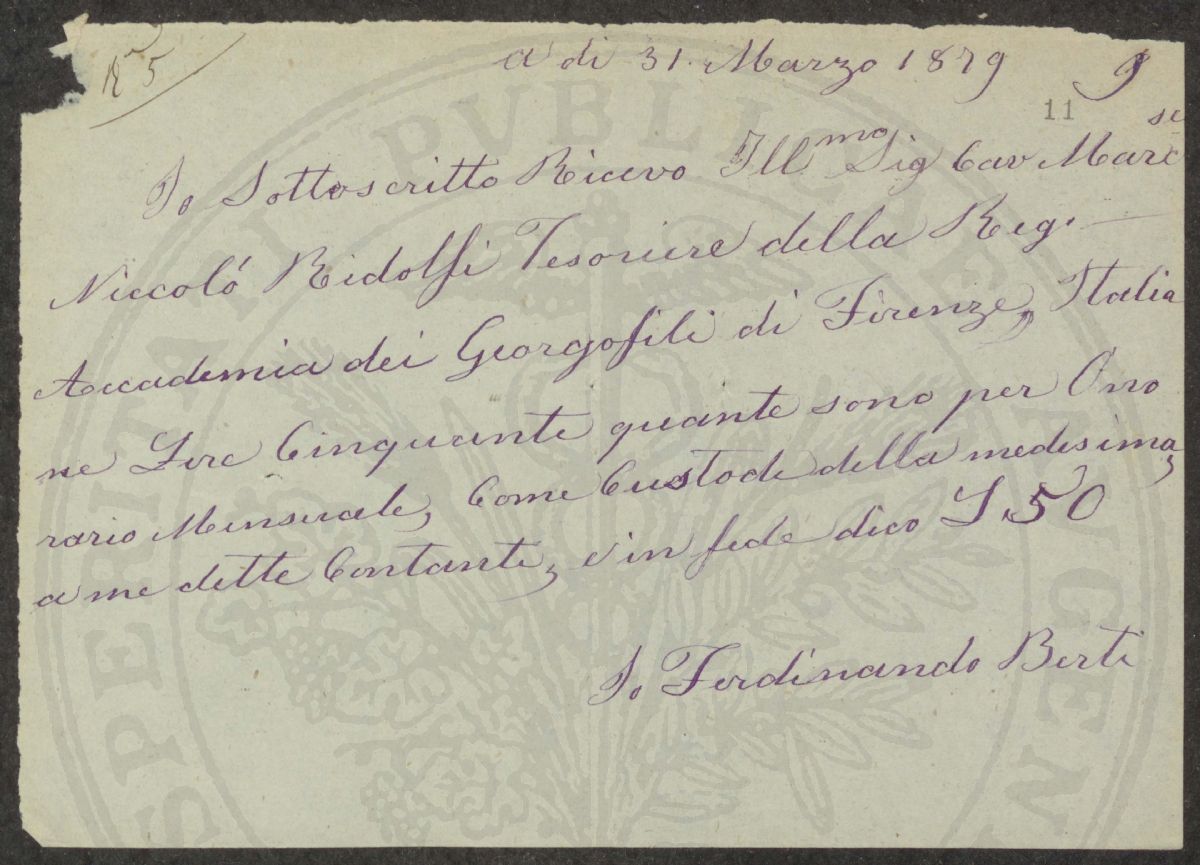 N° 5
a di 31. Marzo 1879
9
11
Io Sottoscritto Ricevo Ill.mo Sig Cav Marcse
Niccoló Ridolfi Tesoriere della Reg.
Accademia dei Georgofili di Firenze, Italia
ne Lire Cinquante quante sono per Ono
rario Mensuale, Come Custode della medesima,
a me dette Contante, e in fede dico L 50
Io Ferdinando Berti
PROSPERITATI PVBLICAE AVGENDAE